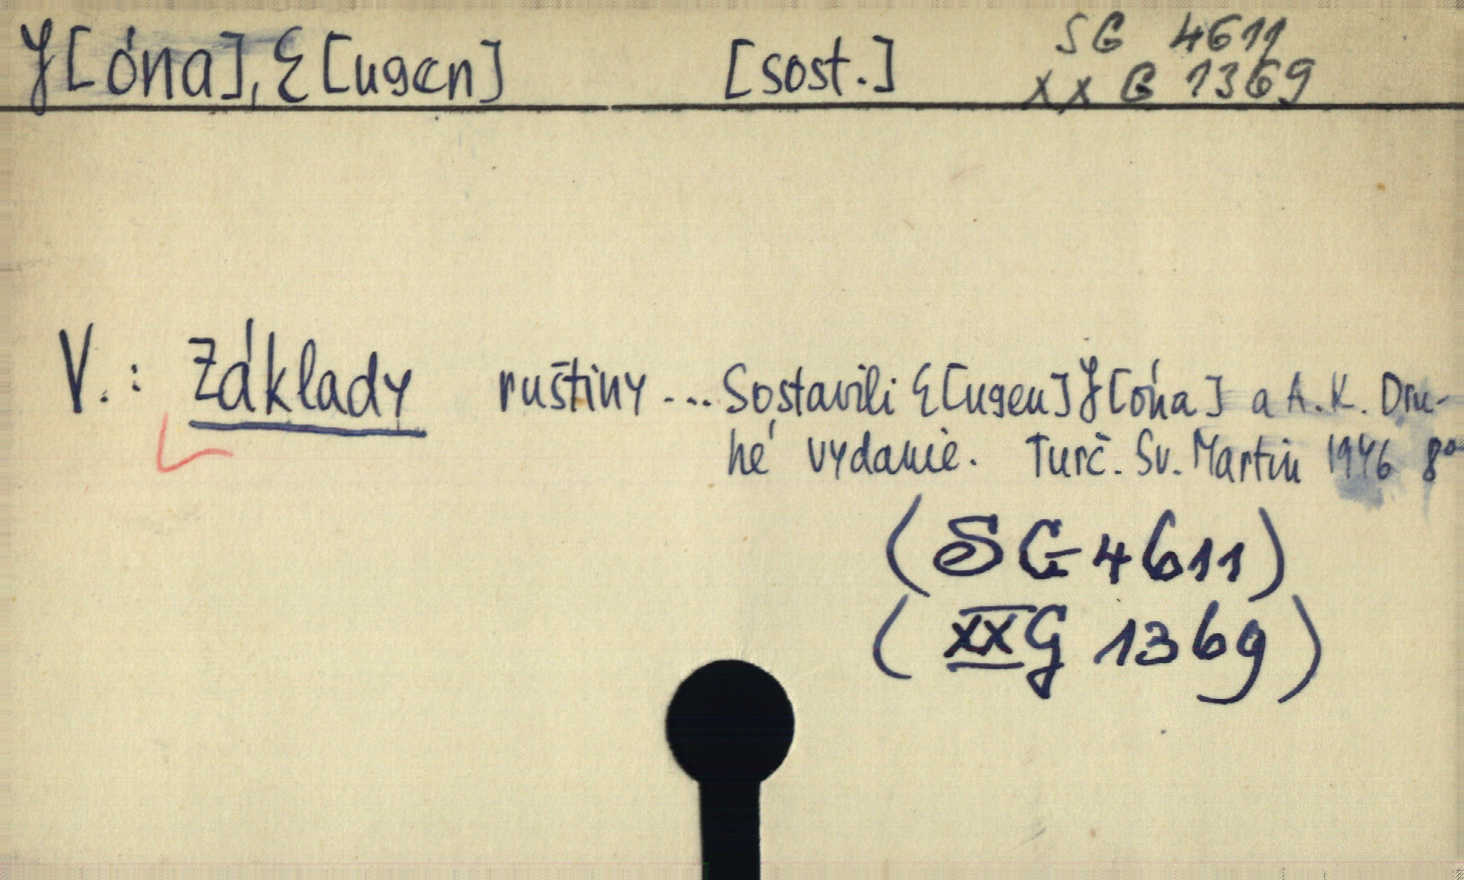 J[óna], E[ugen] [sost.] SG 4611
XX G 1369
V.: Základy ruštiny ... Sostavili E[ugen] J[óna] a A. K. Dru-
hé vydanie. Turč. Sv. Martin 1946 8°
(SG 4611)
(XX G 1369)